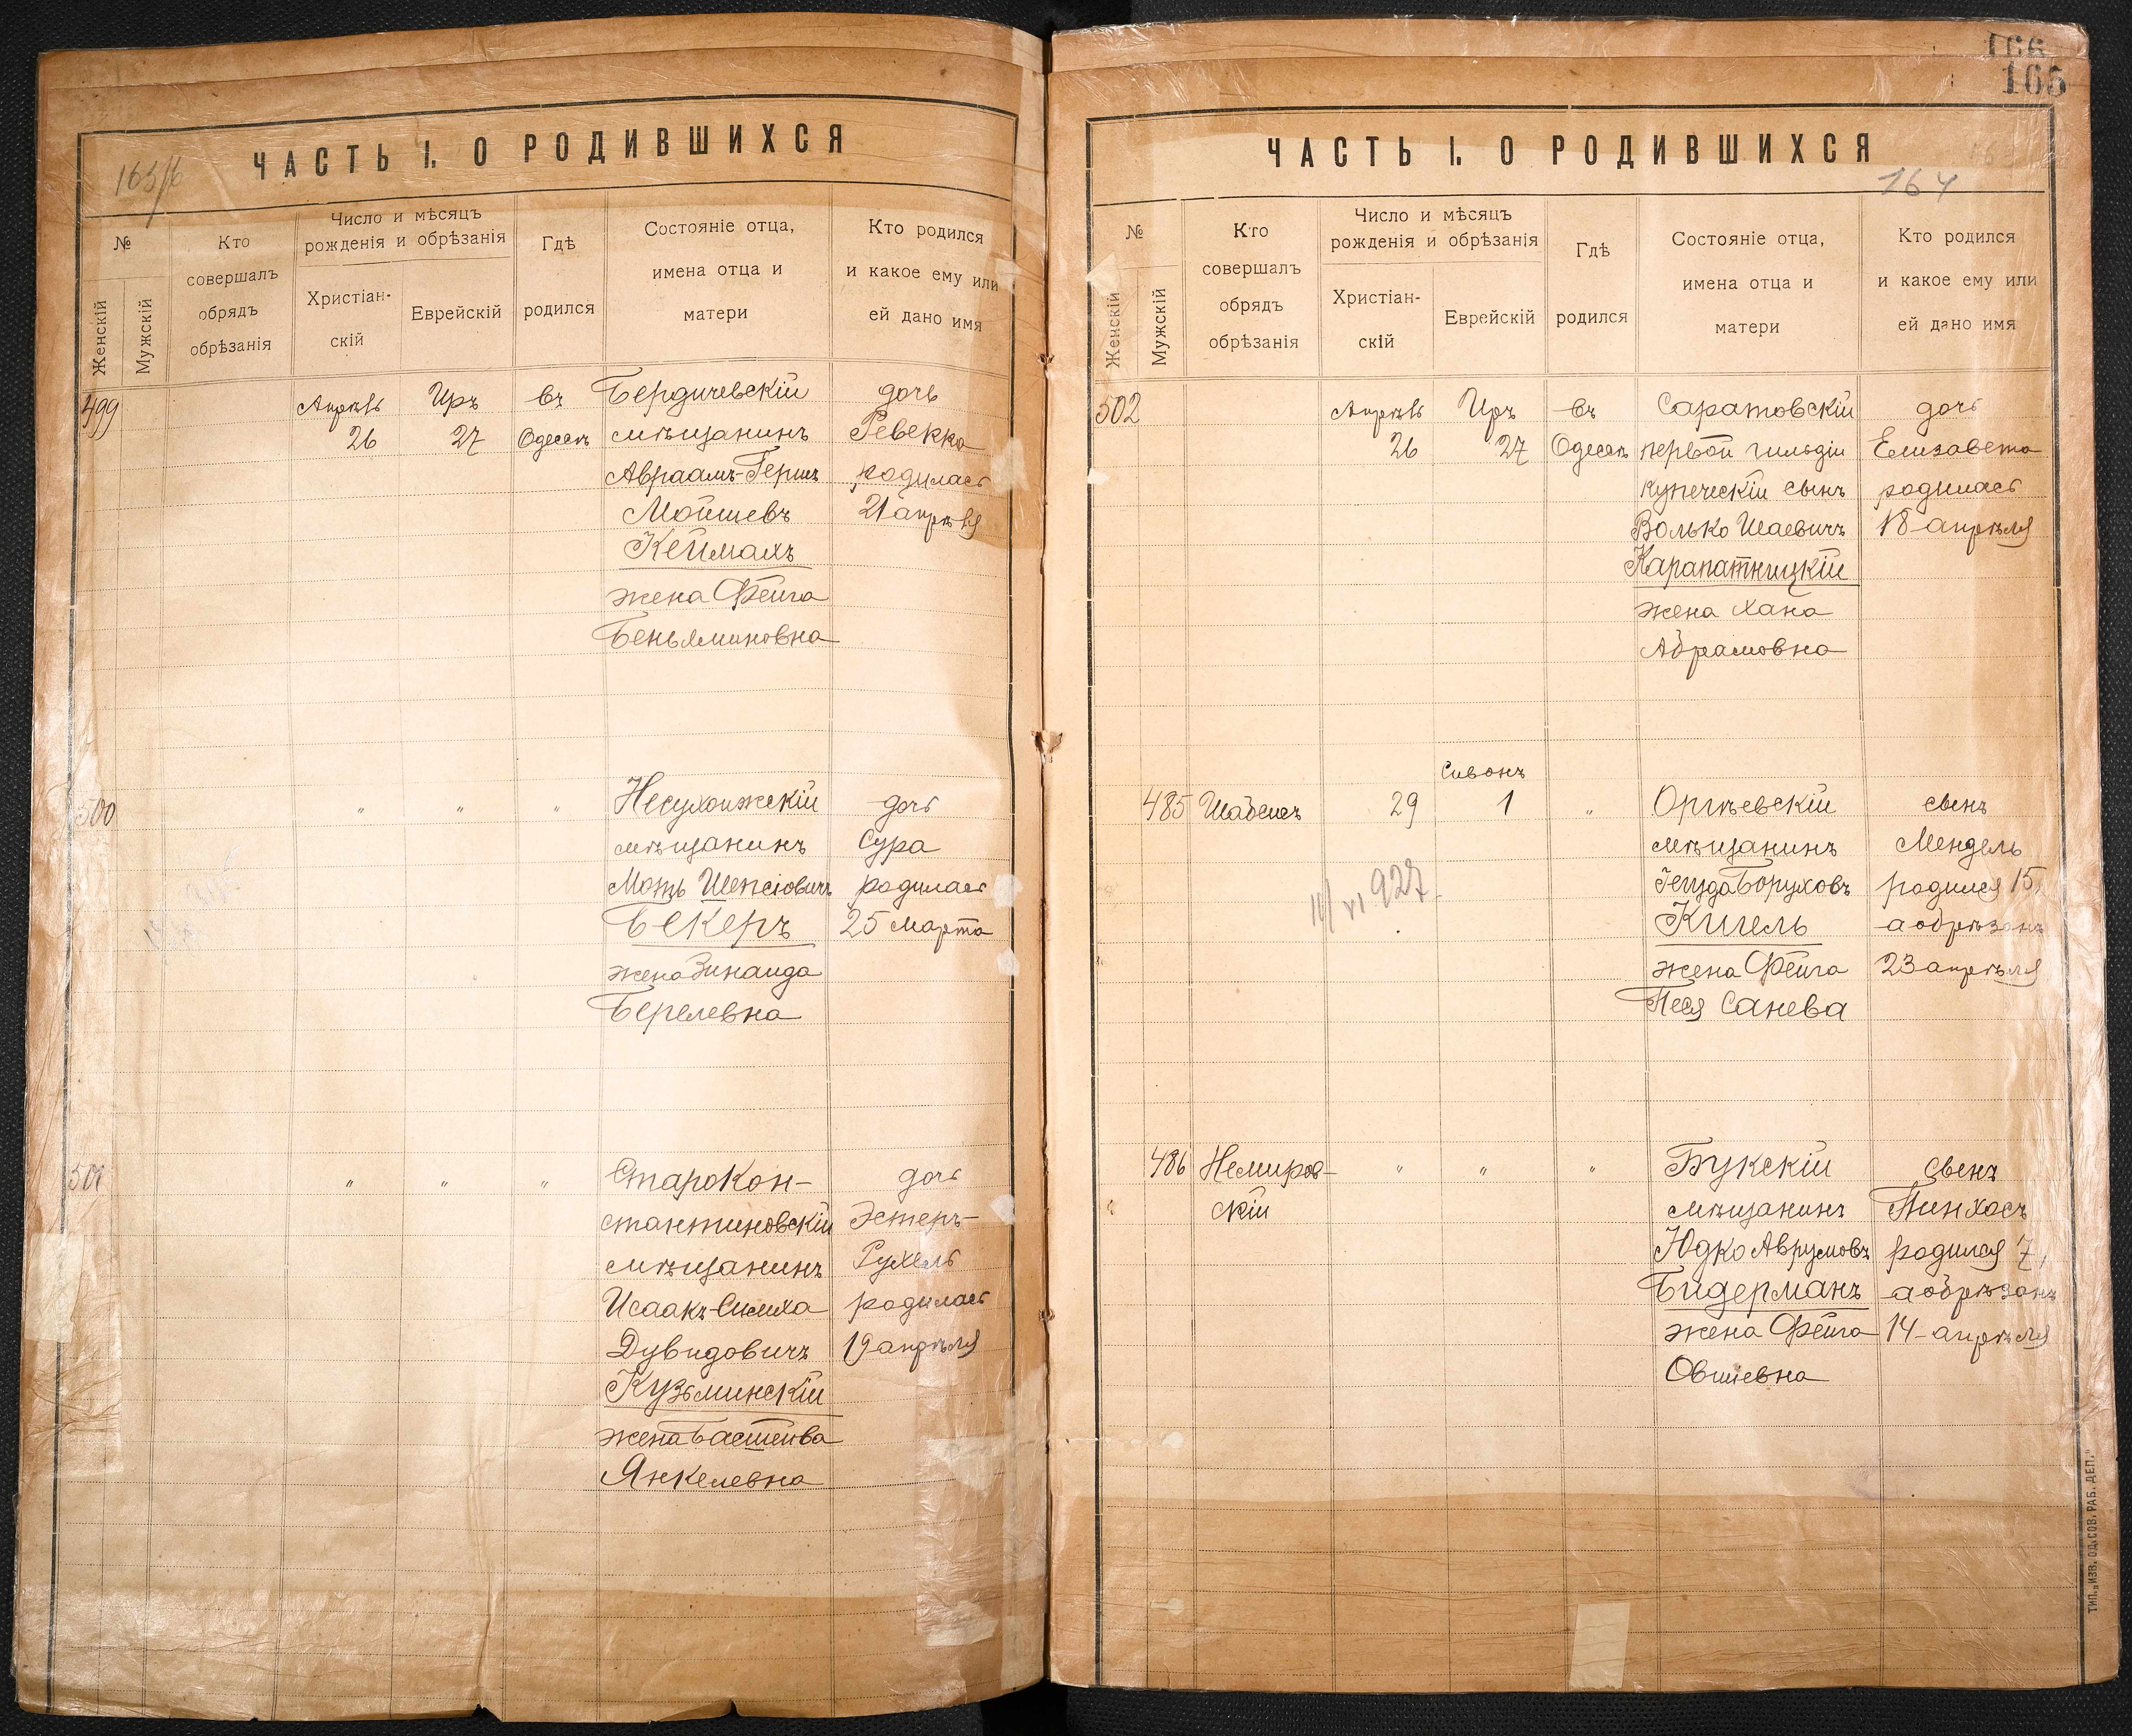 165/б
ЧАСТЬ I. О РОДИВШИХСЯ
№
Женскій
Мужскій
Кто
совершалъ
обрядъ
обрѣзанія
Число и мѣсяцъ
рожденія и обрѣзанія
Христіан-
скій
Еврейскій
Гдѣ
родился
Состояніе отца,
имена отца и
матери
Кто родился
и какое ему или
ей дано имя
499
Апрѣль
26
Иръ
27
въ
Одессѣ
Бердичевскій
мѣщанинъ
Авраамъ-Гершъ
Мойшевъ
Кеймахъ
жена Фейга
Беньяминовна
дочь
Ревекка
родилась
21 апрѣля
500
"
"
"
Несухоижскій
мѣщанинъ
Мотъ Шепсіовичъ
Бекеръ
жена Зинаида
Берелевна
дочь
Сура
родилась
25 марта
501
"
"
"
Старокон-
стантиновскій
мѣщанинъ
Исаакъ-Симха
Дувидовичъ
Кузьминскій
жена Басшейва
Янкелевна
дочь
Эстеръ-
Рухель
родилась
19 апрѣля
166
165
ЧАСТЬ I. О РОДИВШИХСЯ
164
№
Женскій
Мужскій
Кто
совершалъ
обрядъ
обрѣзанія
Число и мѣсяцъ
рожденія и обрѣзанія
Христіан-
скій
Еврейскій
Гдѣ
родился
Состояніе отца,
имена отца и
матери
Кто родился
и какое ему или
ей дано имя
502
Апрѣль
26
Иръ
27
въ
Одессѣ
Саратовскій
первой гильдіи
купеческій сынъ
Волько Шаевичъ
Карапатницкій
жена Хана
Абрамовна
дочь
Елизавета
родилась
18 апрѣля
485
Шабсисъ
29
Сивонъ
1
"
Оргѣевскій
мѣщанинъ
Іегуда Боруховъ
Кигель
жена Фейга
Песя Санева
сынъ
Мендель
родился 15,
а обрѣзанъ
23 апрѣля
927
486
Немиров-
скій
"
"
"
Букскій
мѣщанинъ
Юдко Аврумовъ
Бидерманъ
жена Фейга
Овшіевна
сынъ
Пинхосъ
родился 7,
а обрѣзанъ
14 апрѣля
ТИП. „ИЗВ. ОД. СОВ. РАБ. ДЕП."